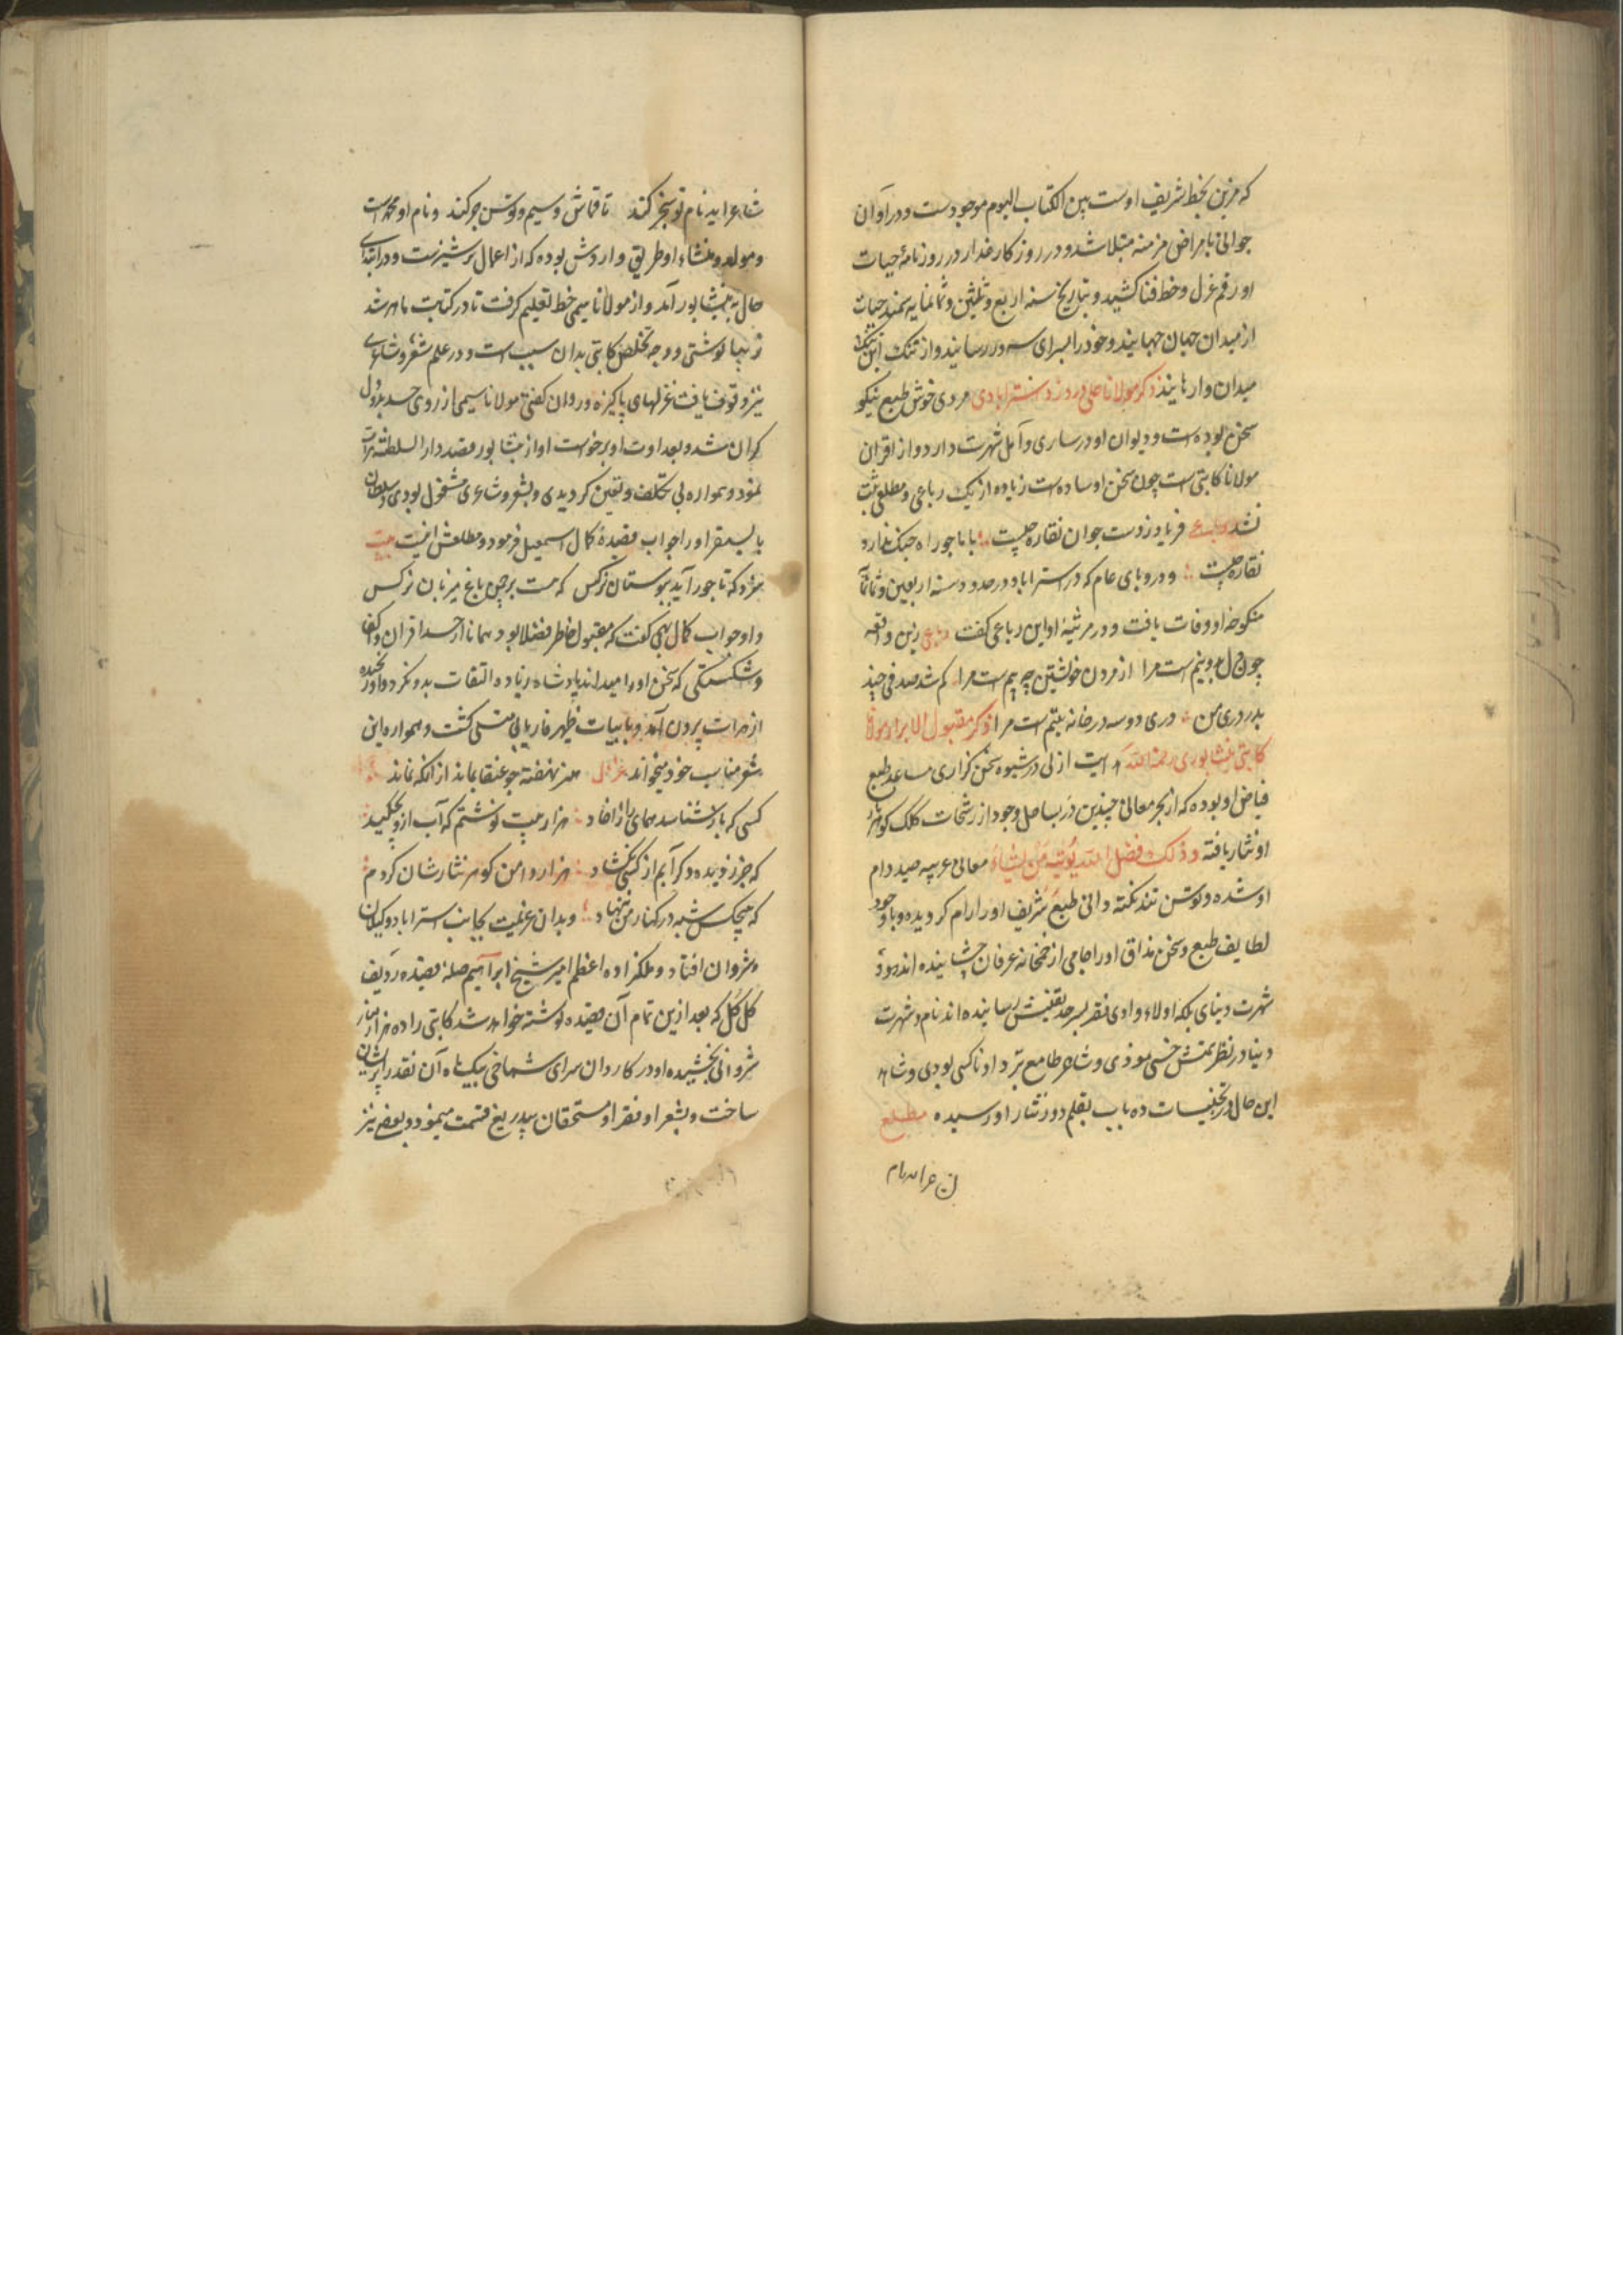 که مزین بخط شریف اوست بین الکتاب الیوم موجودست و در آوان
جوانی بامراض مزمنه مبتلا شد و در روزکار غدار در روزنامهٔ حیات
او رقم عزل و خط فنا کشید و بتاریخ سنه اربع و ثلثین و ثمانمایه سمند حیات
از میدان جهان جهانید و خود را بسرای سرور رسانید و از تنک این
میدان وارهانید ذکر مولانا علی دردزد استرابادی مردی خوش طبع نیکو
سخن بوده است و دیوان او در ساری و آمل شهرت دارد و از اقران
مولانا کاتبی است چون سخن او ساده است زیاده از یک رباعی و مطلعی ثبت
نشد فریاد ز دست جوان نقاره چیت بابا چو راه جنک ندارد
نقاره چیت و در وبای عام که در استراباد در حدود سنه اربعین و ثمانمآ
منکوحهٔ او وفات یافت و در مرثیه او این رباعی کفت رباعی زین واقعه
چون دل دو نیم است مرا از مردن خویشتن چه بیم است مرا کم شد صدفی چند
بدر دری من دری دو سه در خانه یتیم است مرا ذکر مقبول الابرار مولانا
کاتبی نیشابوری رحمة الله هدایت ازلی در شیوه سخن کزاری مساعد طبع
فیاض او بوده که از بحر معانی چندین در بساحل وجود از رشحات کلک کوهربار
او نثار یافته و ذلک فضل الله یؤتیه من یشاء معانی غریبه صید دام
او شده و توسن تند نکته دانی طبع شریف او را رام کردیده و با وجود
لطایف طبع و سخن مذاق او را جامی از خمخانه عرفان چشانیده اند
شهرت دنیای بلکه اولاء وادی فقر بسرحد یقینش رسانیده اند نام و شهرت
دنیا در نظر همتش خسی موذی و شاعر طامع نزد او ناکسی بودی و شاهد
این حال در تجنیسات ده باب بقلم درر نثار او رسیده مطلع
شاعرا بد نام تو
شاعر آید نام تو کنند تا قماش و سیم و توسن جر کند و نام او محمد است
و مولد و منشاء او طریق و اردش بوده که از اعمال ترشیزست و در ابتدای
حال به نیشابور آمد و از مولانا سیمی خط تعلیم کرفت تا در کتابت ماهر شد
زیبا نوشتی و وجه تخلص کاتبی بدان سبب است و در علم شعر و شاعری
نیز وقوف یافت غزلهای پاکیزه و روان کفتی مولانا سیمی از روی حسد بدو دل
کران شد و بعداوت او برخواست او از نیشابور قصد دار السلطنه هرات
نمود و همواره بی تکلف و تعین کردیدی و بشعر و شاعری مشغول بودی و سلطان
بایسنقر او را جواب قصیدهٔ کمال اسمعیل فرمود و مطلعش اینست بیت
سزد که تاجور آید ببوستان نرکس که هست بر چمن باغ میزبان نرکس
و او جواب کمال نهی کفت که مقبول خاطر فضلا بود همانا از حسد اقران و کفا
و شکستکی که سخن او را میداند پادشاه زیاده التفات بدو نکرد و او رنجیده
از هرات برون آمد و بابیات ظهیر فاریابی متسلی کشت و همواره این
شعر مناسب خود میخواند غزل هنر نهفته چو عنقا بماند از آنکه نماند
کسی که باز شناسد همای را از خاد هزار بیت نوشتم که آب ازو بچکید
که جز ز دیده دکر آبم از کسی نکشاد هزار دامن کوهر نثارشان کردم
که هیچکس شبه در کنار من ننهاد و بدان عزیمت بجانب استراباد و کیلان
و شروان افتاد و ملکزاده اعظم امیر شیخ ابراهیم صله قصیده ردیف
کل کل که بعد ازین تمام آن قصیده نوشته خواهد شد کاتبی را ده هزار دینار
شروانی بخشیده او در کاروان سرای شماخی بیک ماه آن نقد را پریشان
ساخت و بشعرا و فقرا و مستحقان بیدریغ قسمت مینمود و بعضی نیز